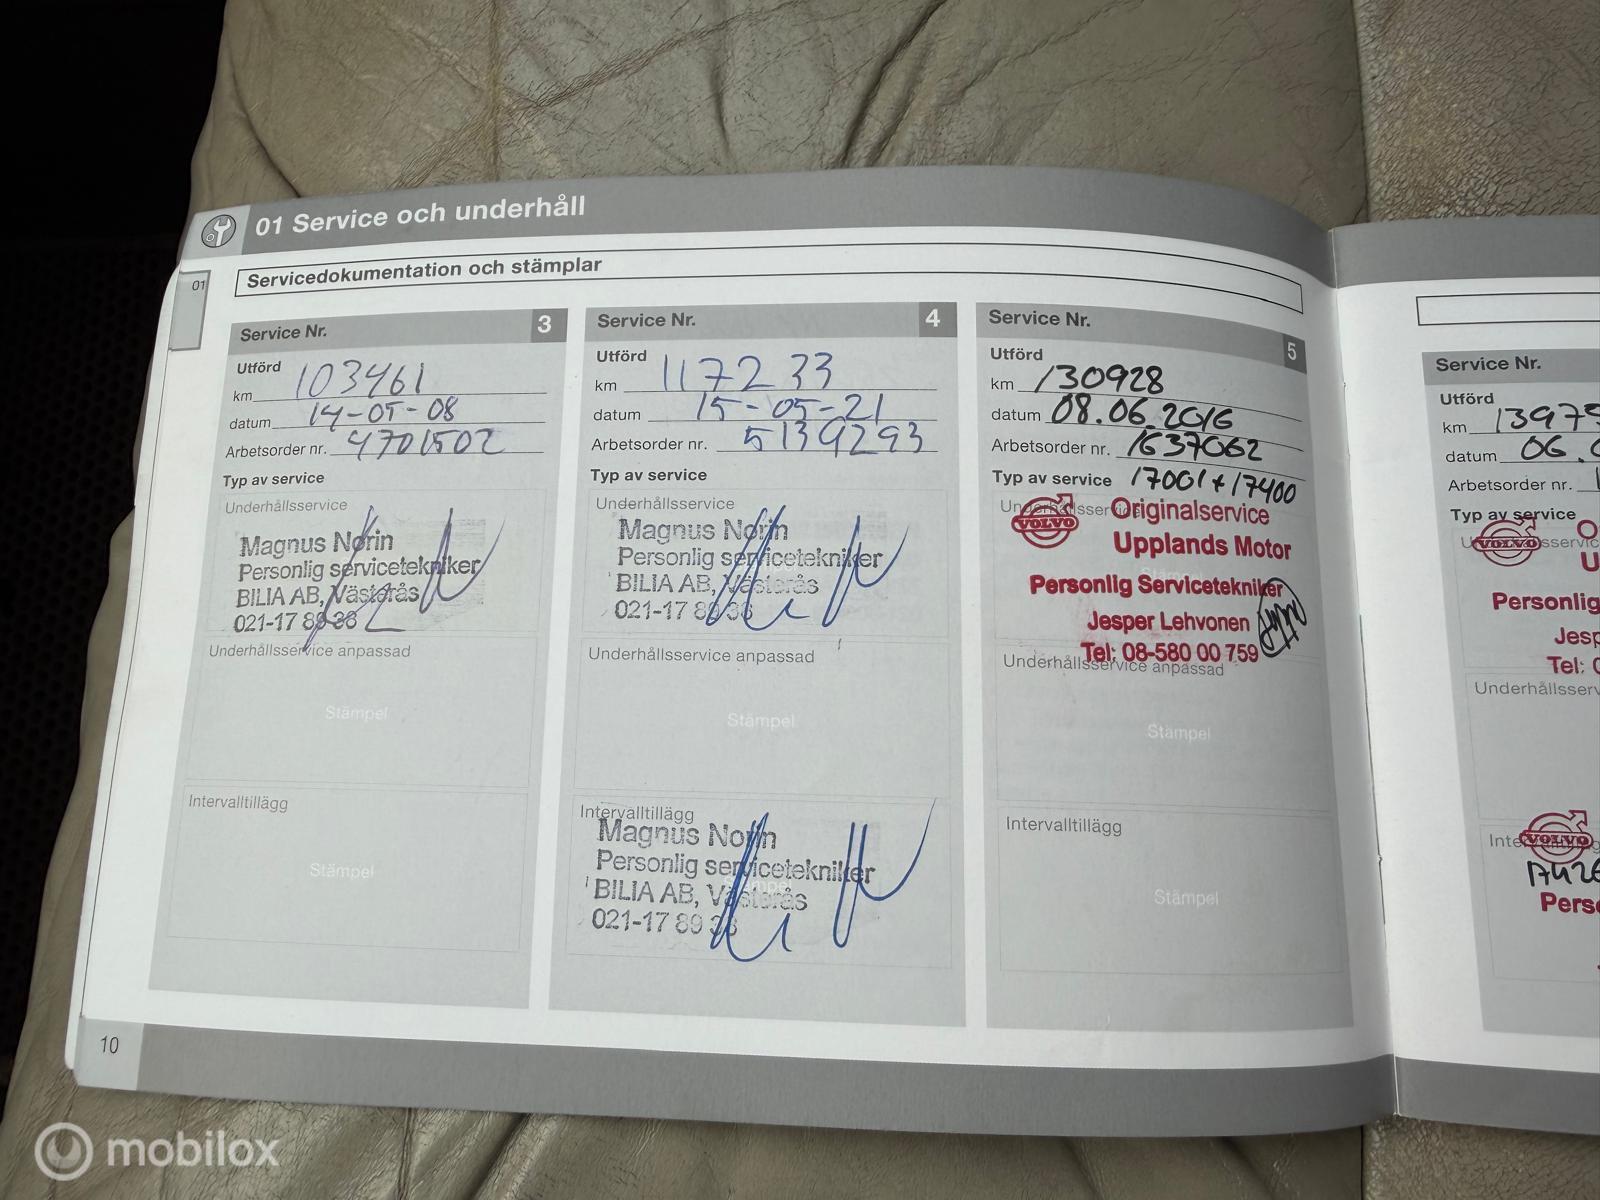 01 Service och underhåll
Servicedokumentation och stämplar
01
Service Nr. 3
Utförd
km 103461
datum 14-05-08
Arbetsorder nr. 4701502
Typ av service
Underhållsservice
Magnus Norin
Personlig servicetekniker
BILIA AB, Västerås
021-17 89 38
Underhållsservice anpassad
Stämpel
Intervalltillägg
Stämpel
Service Nr. 4
Utförd
km 117233
datum 15-05-21
Arbetsorder nr. 5139293
Typ av service
Underhållsservice
Magnus Norin
Personlig servicetekniker
BILIA AB, Västerås
021-17 89 38
Underhållsservice anpassad
Stämpel
Intervalltillägg
Magnus Norin
Personlig servicetekniker
BILIA AB, Västerås
021-17 89 38
Service Nr. 5
Utförd
km 130928
datum 08.06.2016
Arbetsorder nr. 1637062
Typ av service 17001+17400
Underhållsservice
VOLVO
Originalservice
Upplands Motor
Personlig Servicetekniker
Jesper Lehvonen
Tel: 08-580 00 759
Underhållsservice anpassad
Stämpel
Intervalltillägg
Stämpel
Service Nr.
Utförd
km 13975
datum 06.
Arbetsorder nr.
Typ av service
VOLVO
Personlig
Jesp
Tel: 0
Underhållsserv
VOLVO
1742
Perso
10
mobilox